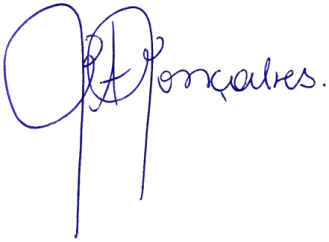 Gonçalves.